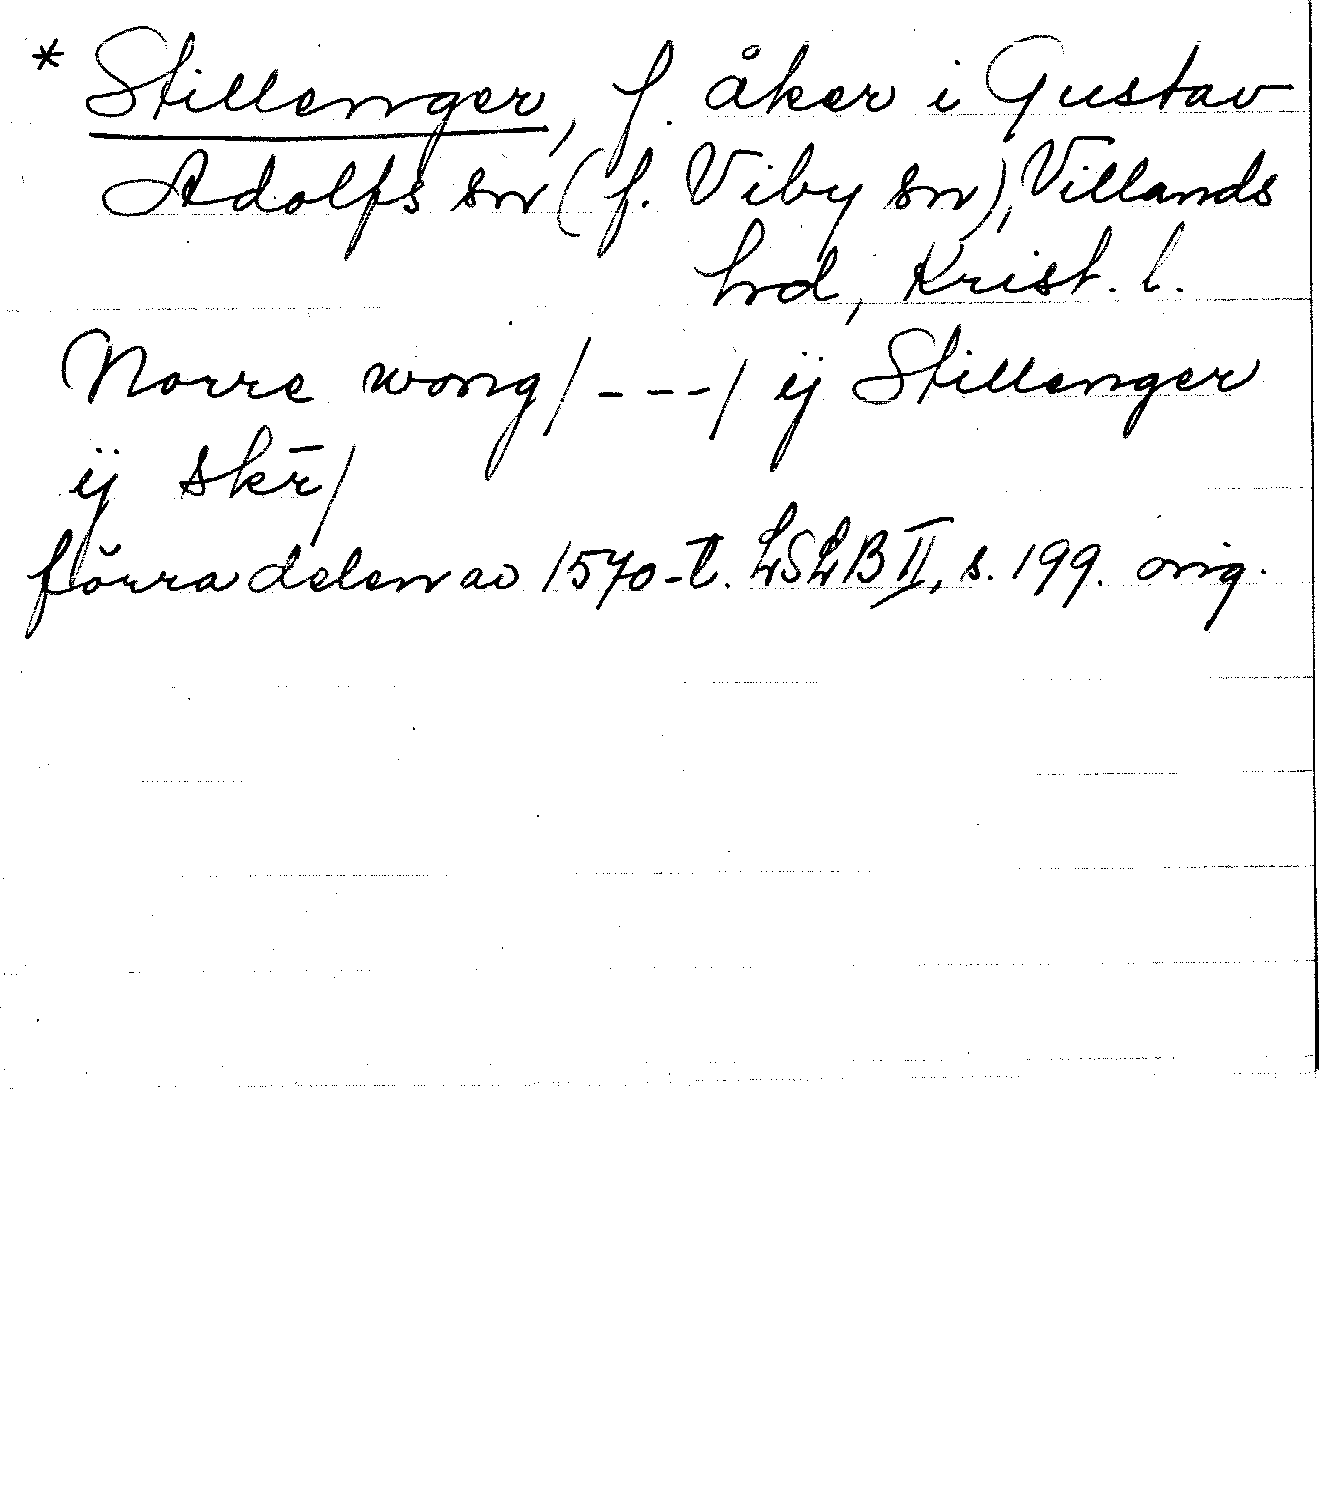 * Stillenger, f. åker i Gustav
Adolfs sn (f. Viby sn), Villands
hrd, Krist. l.
Norre wong/---/ ij Stillenger
ij skr̄/
förra delen av 1570-t. LSLB II, s. 199. orig.